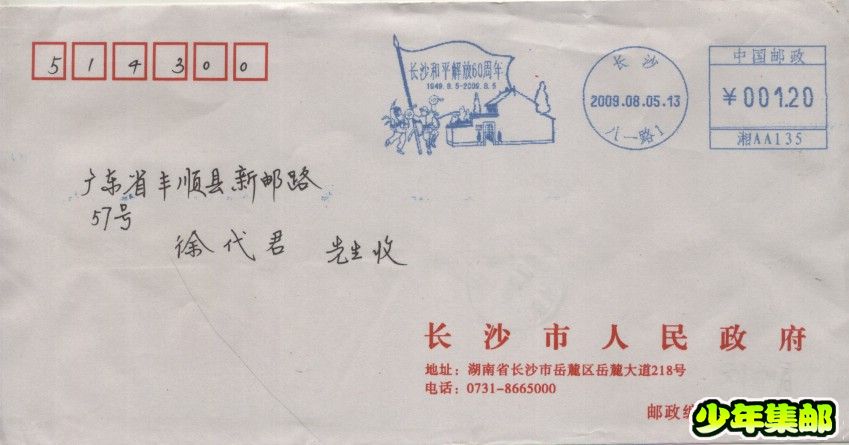 514300
长沙和平解放60周年
1949.8.5-2009.8.5
长沙
2009.08.05.13
八一路1
中国邮政
¥001.20
湘AA135
广东省丰顺县新邮路
57号
徐代君 先生收
长沙市人民政府
地址：湖南省长沙市岳麓区岳麓大道218号
电话：0731-8665000
邮政编
少年集邮